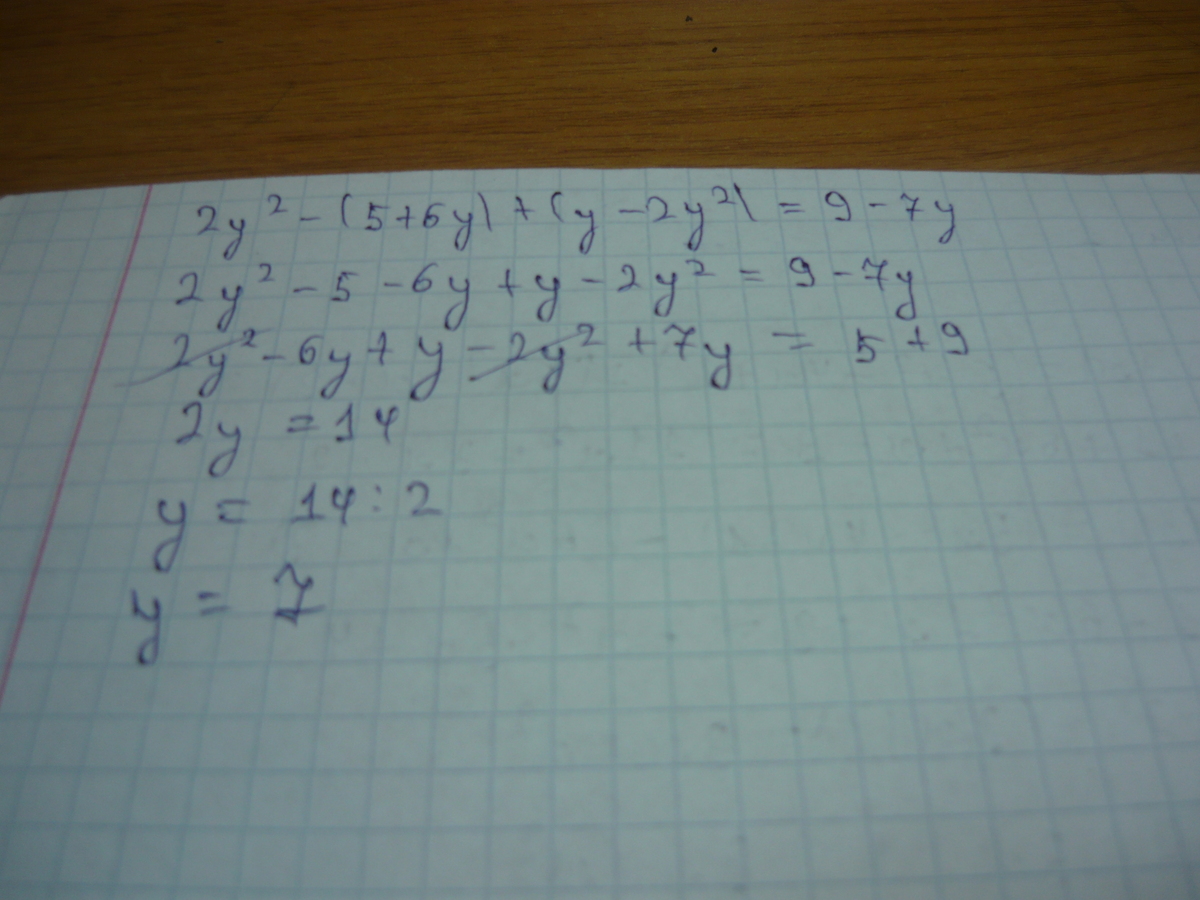 2y² - (5 + 6y) + (y - 2y²) = 9 - 7y
2y² - 5 - 6y + y - 2y² = 9 - 7y
2y² - 6y + y - 2y² + 7y = 5 + 9
2y = 14
y = 14 : 2
y = 7